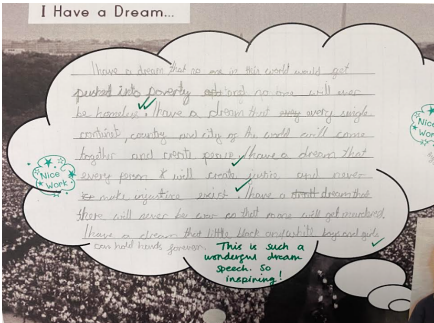 I Have a Dream...
I have a dream that no one in this world would get
pushed into poverty and no one will ever
be homeless. I have a dream that every single
continent, country and city of the world will come
together and create peace. I have a dream that
every person will create justice and never
make injustice exist. I have a dream that
there will never be war so that more will get murdered.
I have a dream that little black and white boys and girls
can hold hands forever.
Nice Work
This is such a
wonderful dream
speech. So
inspiring!